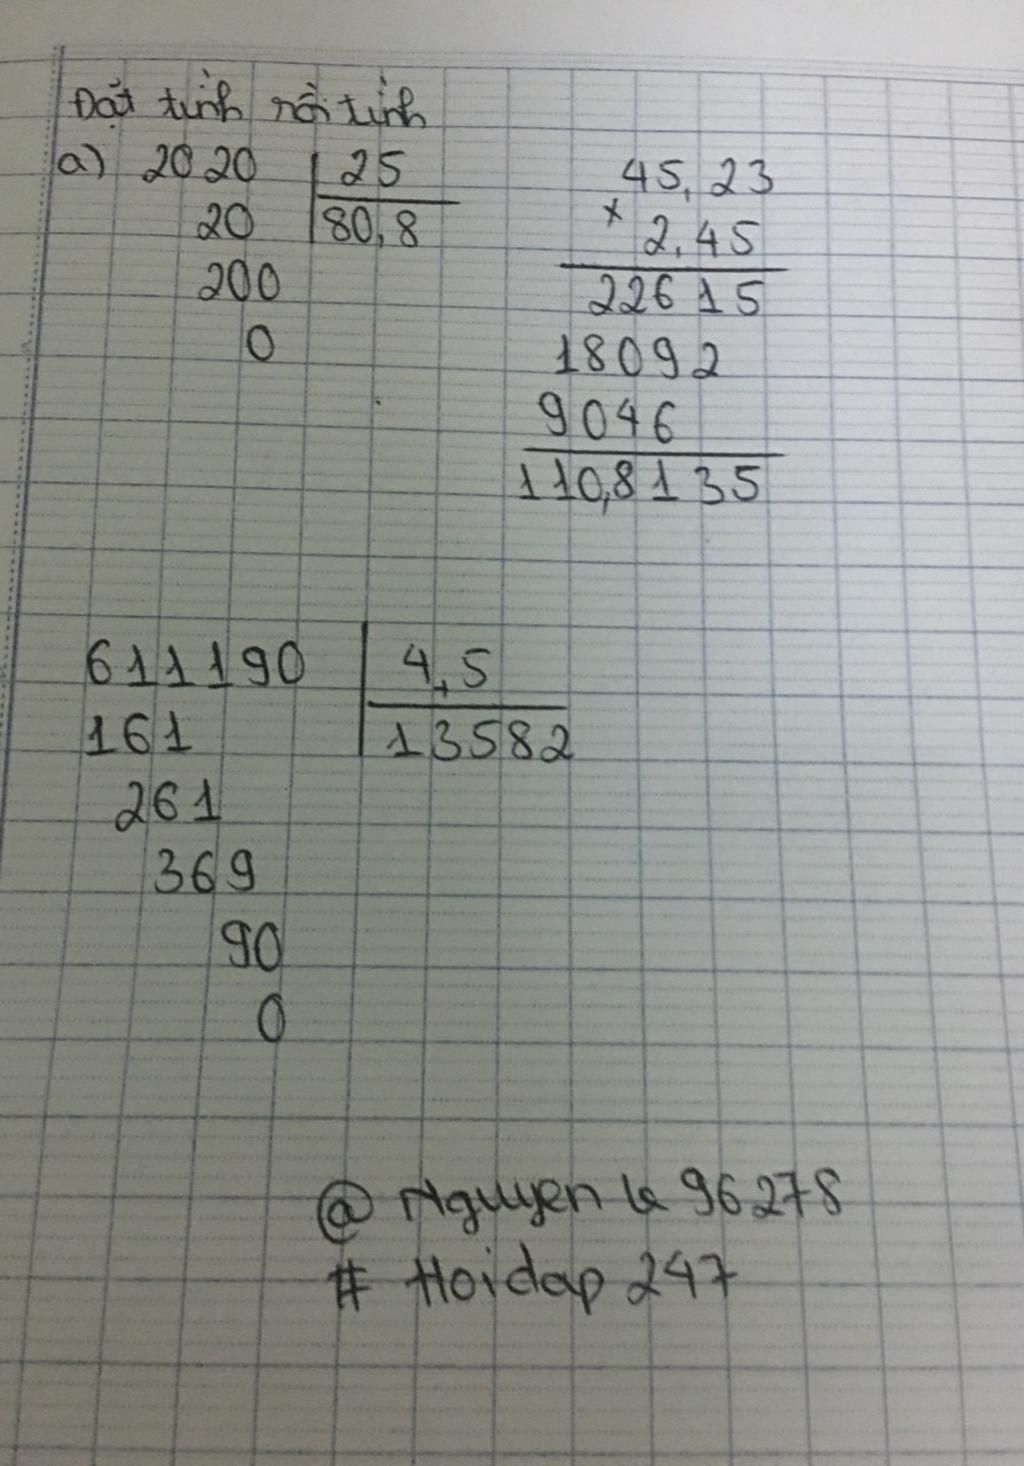 Đặt tính rồi tính
a) 2020 25
20 80,8
200
0
45,23
x 2,45
22615
18092
9046
110,8135
611190 4,5
161 13582
261
369
90
0
@ Nguyen le 96278
# Hoidap 247